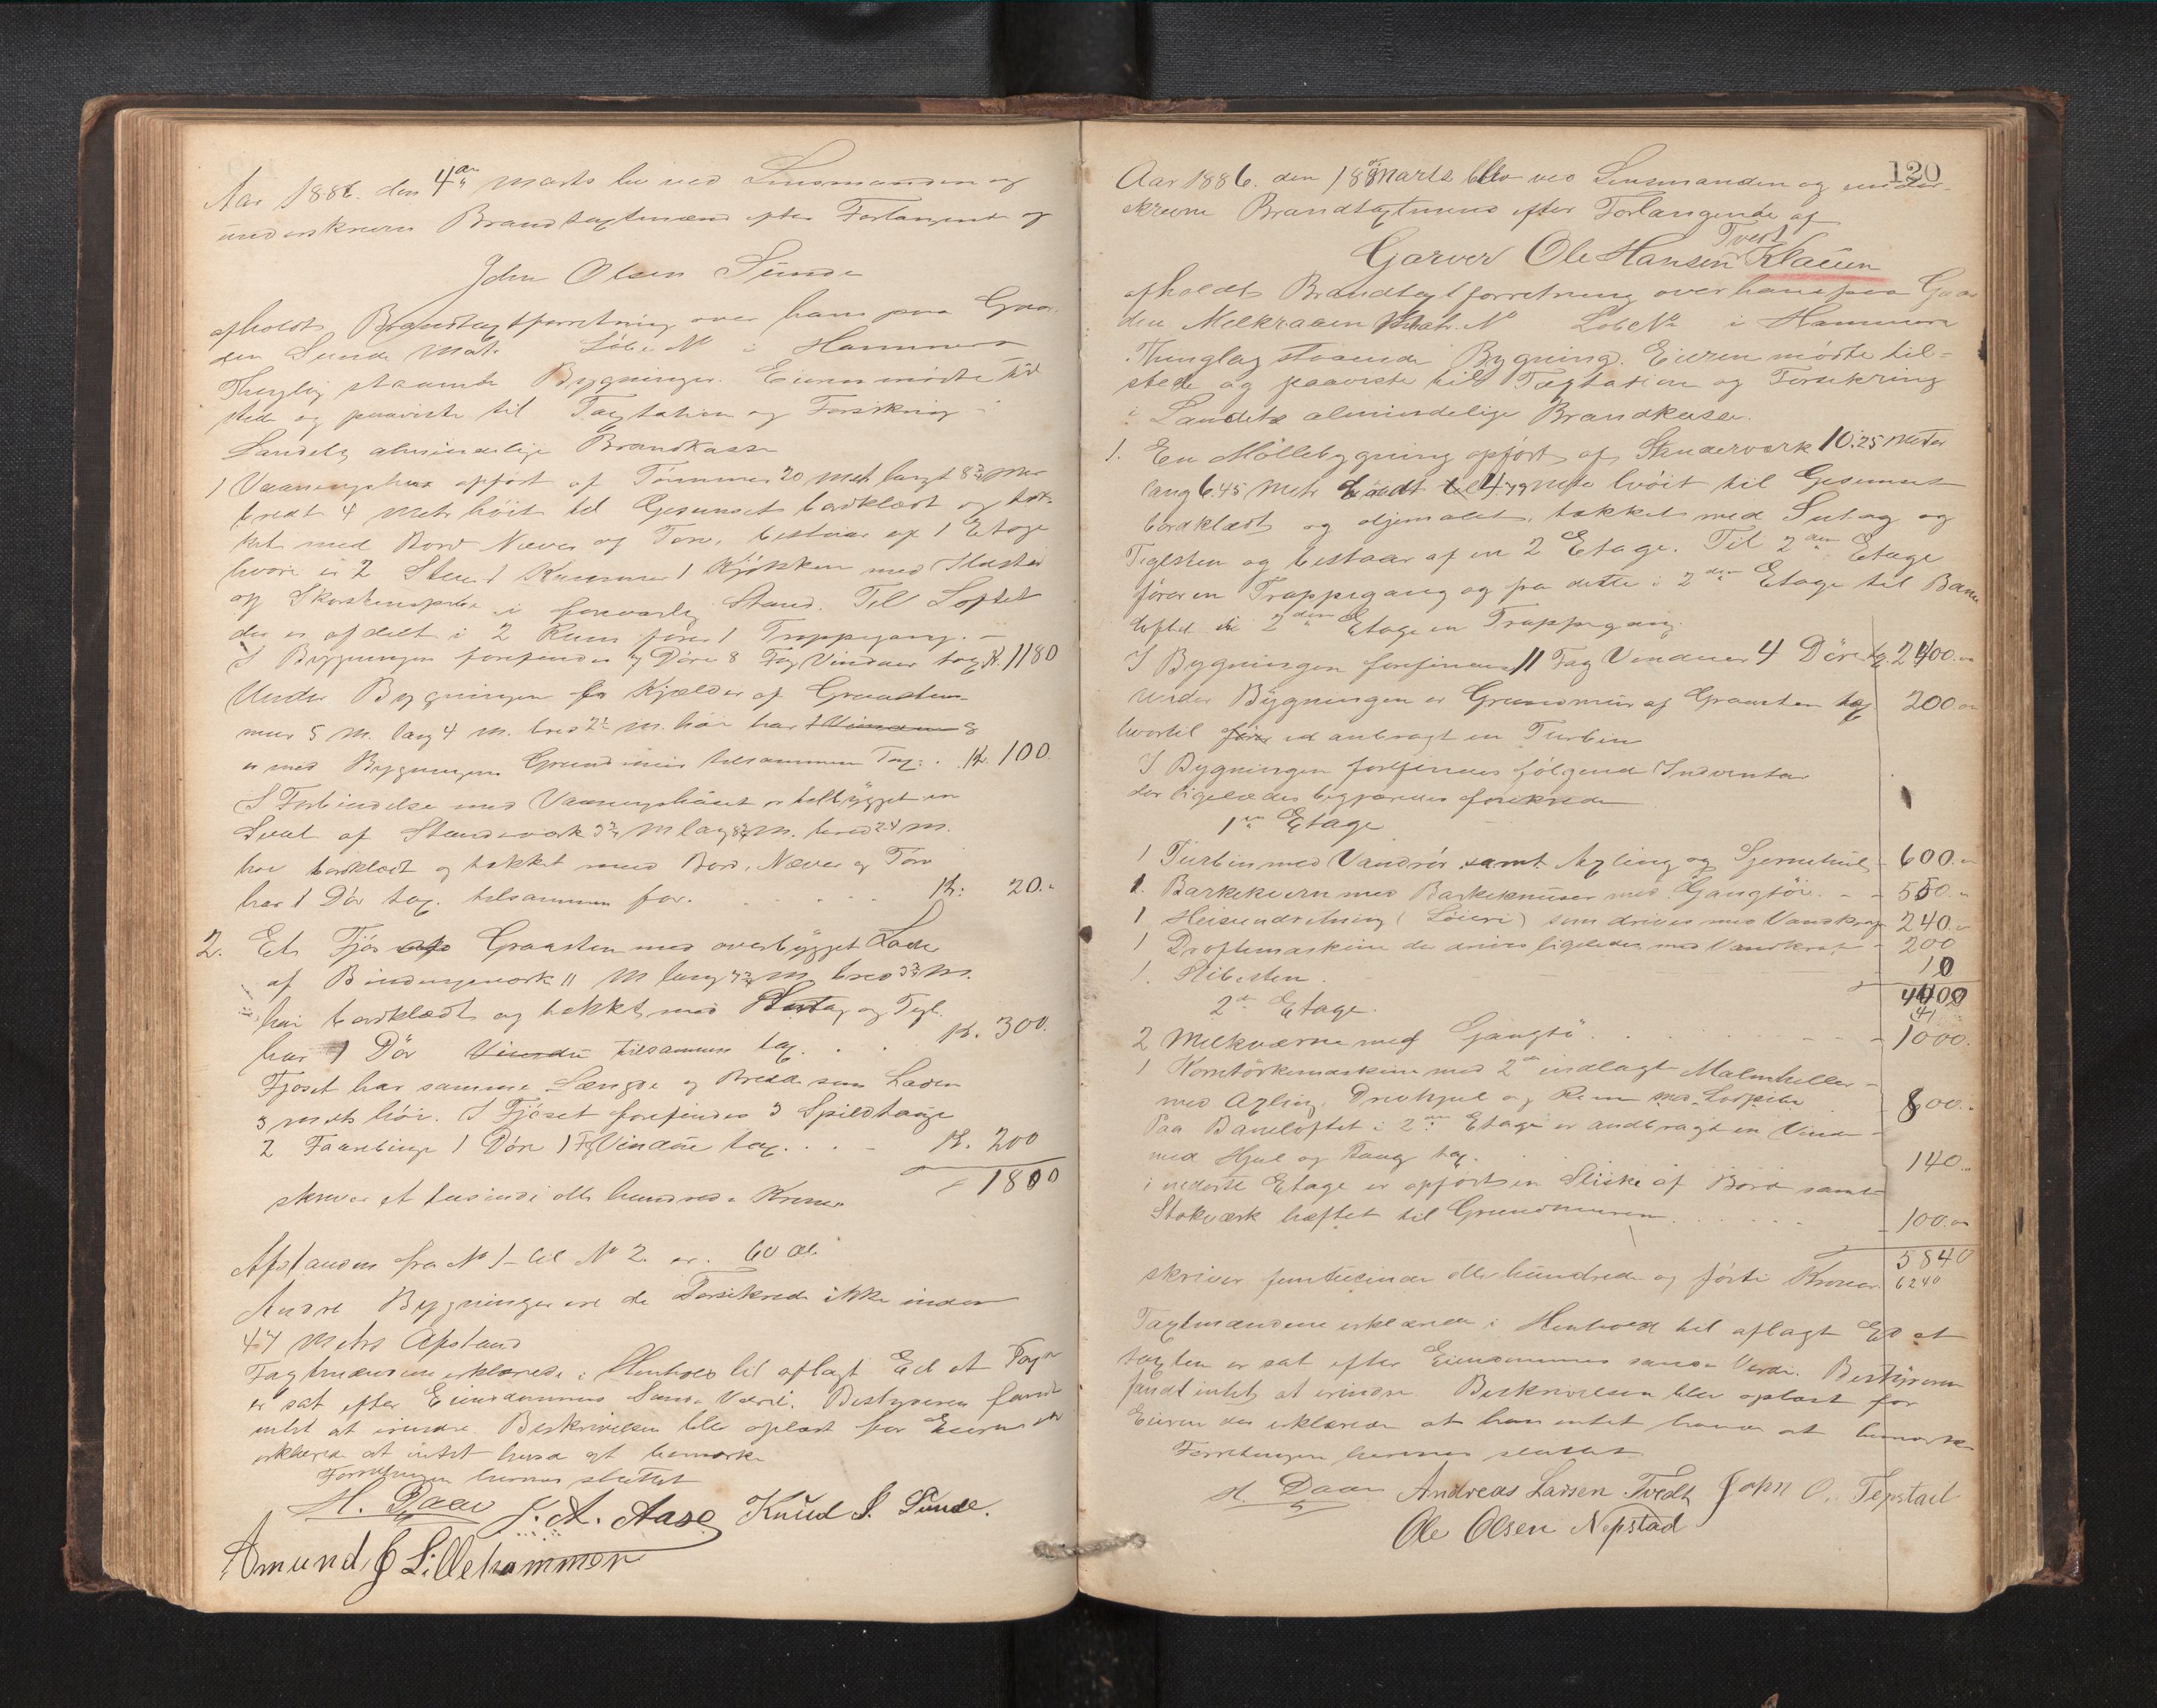 Aar 1886. den 4de Marts blev ved Lensmanden og
underskrevne Brandtagtmænd efter Forlangende af
John Olsen Sunde
afholdt Brandtagtforretning over hans paa Gaar-
den Sunde Matr. Løbe No i Hammers
Thinglag staaende Bygninger. Eieren mødte til
stede og paaviste til Tagtation og Forsikring i
Landets almindelige Brandkasse
1 Vaaningshus opført af Tømmer 20 Met langt 8
bredt 4 Metr høit til Gesimset bordklædt og tæk-
ket med Bord Næver og Torv, bestaar af 1 Etage
hvori er 2 Stuer 1 Kammer 1 Kjøkken med Ildsted
og Skorstenspibe i forsvarlig Stand. Til Loftet
der er afdelt i 2 Rum fører 1 Trappegang. –
I Bygningen forefindes 7 Døre 8 Fag Vinduer tax Kr. 1180
Under Bygningen Kjælder af Graastens-
mur 5 M. lang 4 M. bred M. høi har
er med Bygningens Grundmur tilsammen Tax: . Kr. 100.
I Forbindelse med Vaaningshuset er tilbygget en
Sval af Stenderværk M lang M. bred M.
høi bordklædt og tækket med Bord, Næver og Torv
har 1 Dør tax. tilsammen for. . . . . . Kr: 20.-
2. Et Fjøs Graasten med overbygget Lade
af Bindingsværk 11 M lang M. bred M.
høi bordklædt og tækket med Sutag og Tegl.
har 1 Dør Vindu tilsammen tax. . . Kr. 300.
Fjøset har samme Længde og Bredde som Laden
3 Metr høi. I Fjøset forefindes 3 Spildtauge
2 Faarebinge 1 Døre 1 Fag Vindue tax. . . - Kr. 200
1800
skriver et tusinde otte hundrede Kroner
Afstanden fra No 1 til No 2. er. 60 Al.
Andre Bygninger ere de Forsikrede ikke inden
47 Metrs Afstand
Tagtmændene erklærede i Henhold til aflagt Ed at Taxten
er sat efter Eiendommens Sande Værdi. Bestyreren fandt
intet at erindre. Beskrivelsen blev oplæst for Eieren der
erklærede at intet havde at bemærke
Forretningen hermed sluttet
H. Daae J. A. Aase Knud J. Sunde.
Amund J Lillehammer
120
Aar 1886. den 18de Marts blev ved Lensmanden og under-
skrevne Brandtagtmænd efter Forlangende af
Tvedt
Garver Ole Hansen Klauen
afholdt Brandtagtforretning over hans paa Gaar
den Melkraaen Matr. No Løbe No i Hammers
Thinglag staaende Bygning. Eieren mødte til-
stede og paaviste til Tagtation og Forsikring
i Landets almindelige Brandkasse.
1. En Møllebygning opført af Stenderværk 10.25 Meter
lang 6.45 Metr bredt 4.79 Mete høit til Gesimset
bordklædt og oljemalet, tækket med Sutag og
Teglsten og bestaar af en 2 Etage. Til 2den Etage
fører en Trappegang og fra dette i 2den Etage til Bane
loftet i 2den Etage en Trappegang.
I Bygningen forefindes 11 Fag Vinduer 4 Døre tax. 2400.-
Under Bygningen er Grundmur af Graasten tax 200.-
hvortil er anbragt en Turbin
I Bygningen forefindes følgende Indventar
der ligeledes begjæredes forsikrede
1ste Etage
1 Turbin med Vandrør samt Axling og Stjernehjul - 600.-
1. Barkekvern med Barkeknuser med Gangtøi. - - 550.-
1 Heiseindretning (Løieri) som drives med Vandkraft 240.-
1 Droftemaskine der drives ligeledes med Vandkraft - 200
1. Slibesten. - 10
4400
2de Etage.
2 Melkværne med Gangtø . . . . . - - - 1000.
1 Korntørkemaskine med 2 indlagt Malmheller -
med Axling, Drivhjul og Rem 800.-
Paa Baneloftet i 2den Etage er andbragt en Vinde -
med Hjul og Taug tax. 140.-
i nederste Etage er opført en Sliske af Bord samt
Stokværk hæftet til Grundmuren . . . . . . - 100.-
5840
skriver femtusinde otte hundrede og førti Kroner. 6240
Taxtmændene erklærede i Henhold til aflagt Ed at
taxten er sat efter Eiendommens sande Værdi. Bestyreren
fandt intet at erindre. Beskrivelsen blev oplæst for
Eieren der erklærede at han intet havde at bemærke
Forretningen hermed sluttet.
H. Daae Andreas Larsen Tvedt John O. Tepstad
Ole Olsen Nepstad